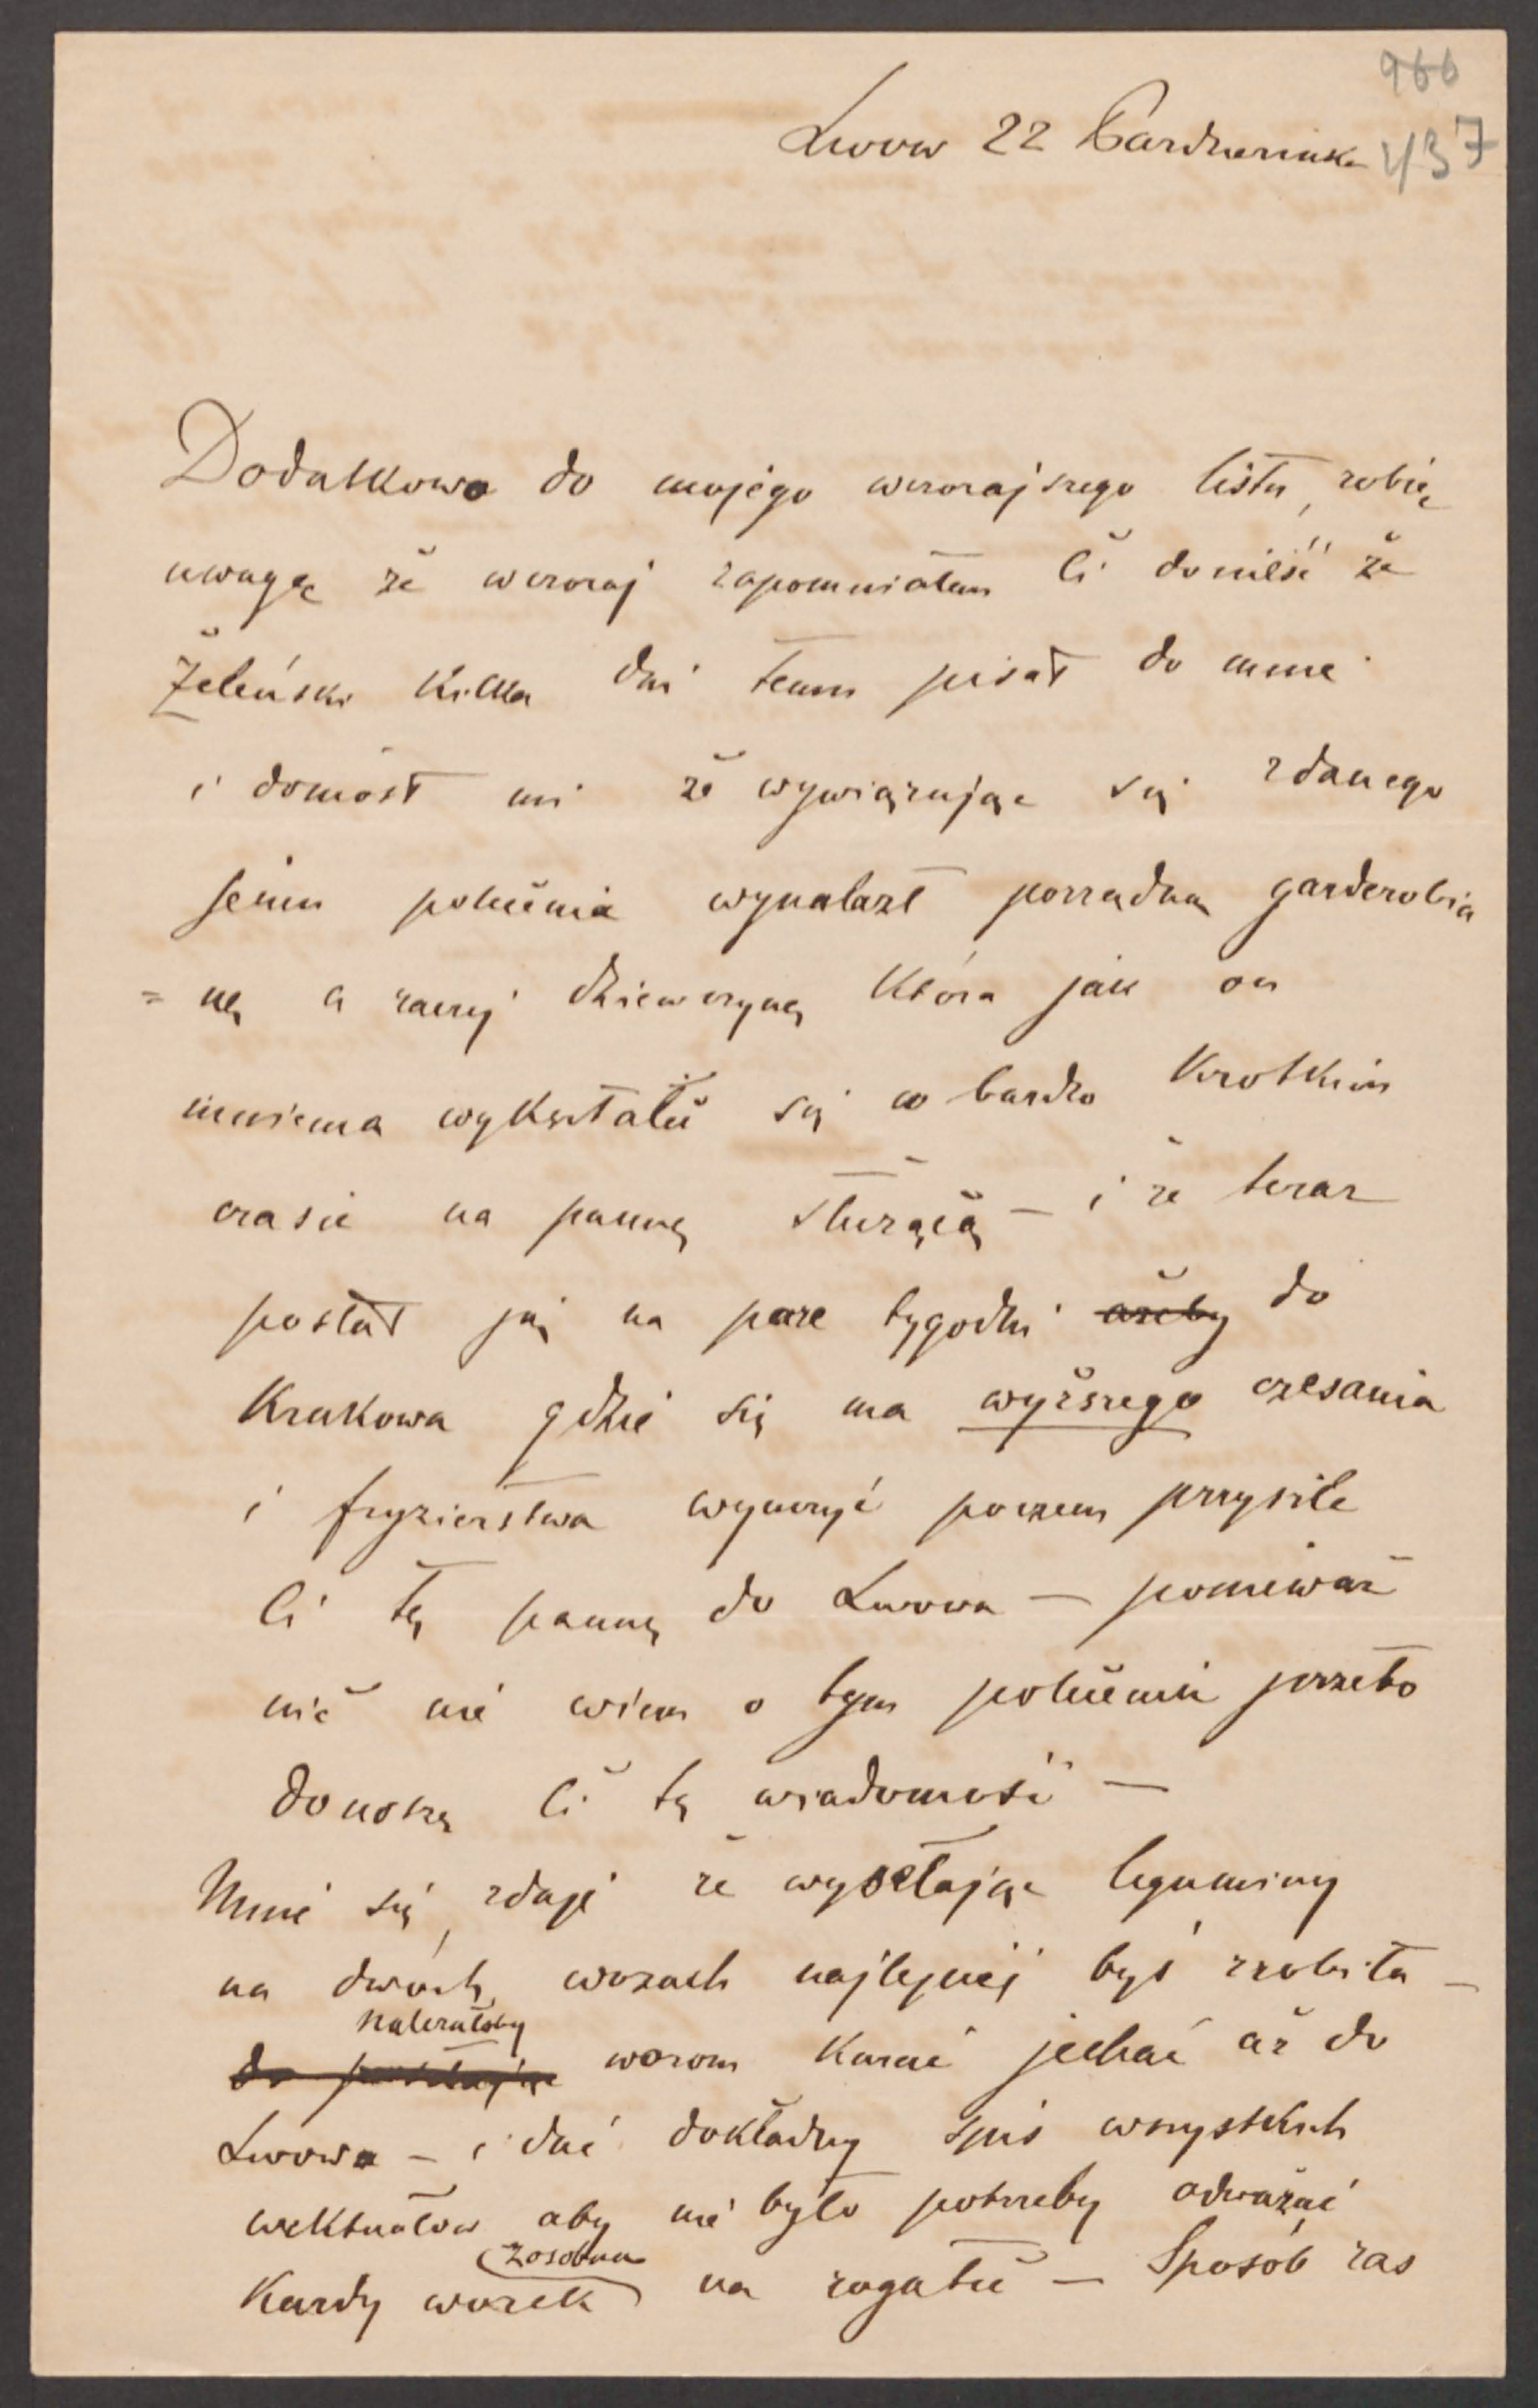 966
Lwow 22 Pazdziernika 437
Dodatkowo do mojego wczorajszego listu, robię
uwagę że wczoraj zapomniałem Ci donieść że
Żeleński kilka dni temu pisał do mnie
i doniósł mi że wywiązując się z danego
jemu polecenia wynalazł porządną garderobia
= nę a raczej dziewczynę która jak on
mniema wykształci się w bardzo krotkim
czasie na pannę służącą – i że teraz
posłał ją na pare tygodni ażeby do
Krakowa gdzie się ma wyższego czesania
i fryzierstwa wyuczyć poczem przyszle
Ci tę pannę do Lwowa – ponieważ
nic nie wiem o tym poleceniu przeto
donoszę Ci tę wiadomość –
Mnie się zdaje że wysełając leguminy
na dwóch wozach najlepiej byś zrobiła –
należałoby
do wozom kazać jechać aż do
Lwowa – i dać dokładny spis wszystkich
wiktuałow aby nie było potrzeby odważać
zosobna
Kazdy worek na rogatce – Sposób zas